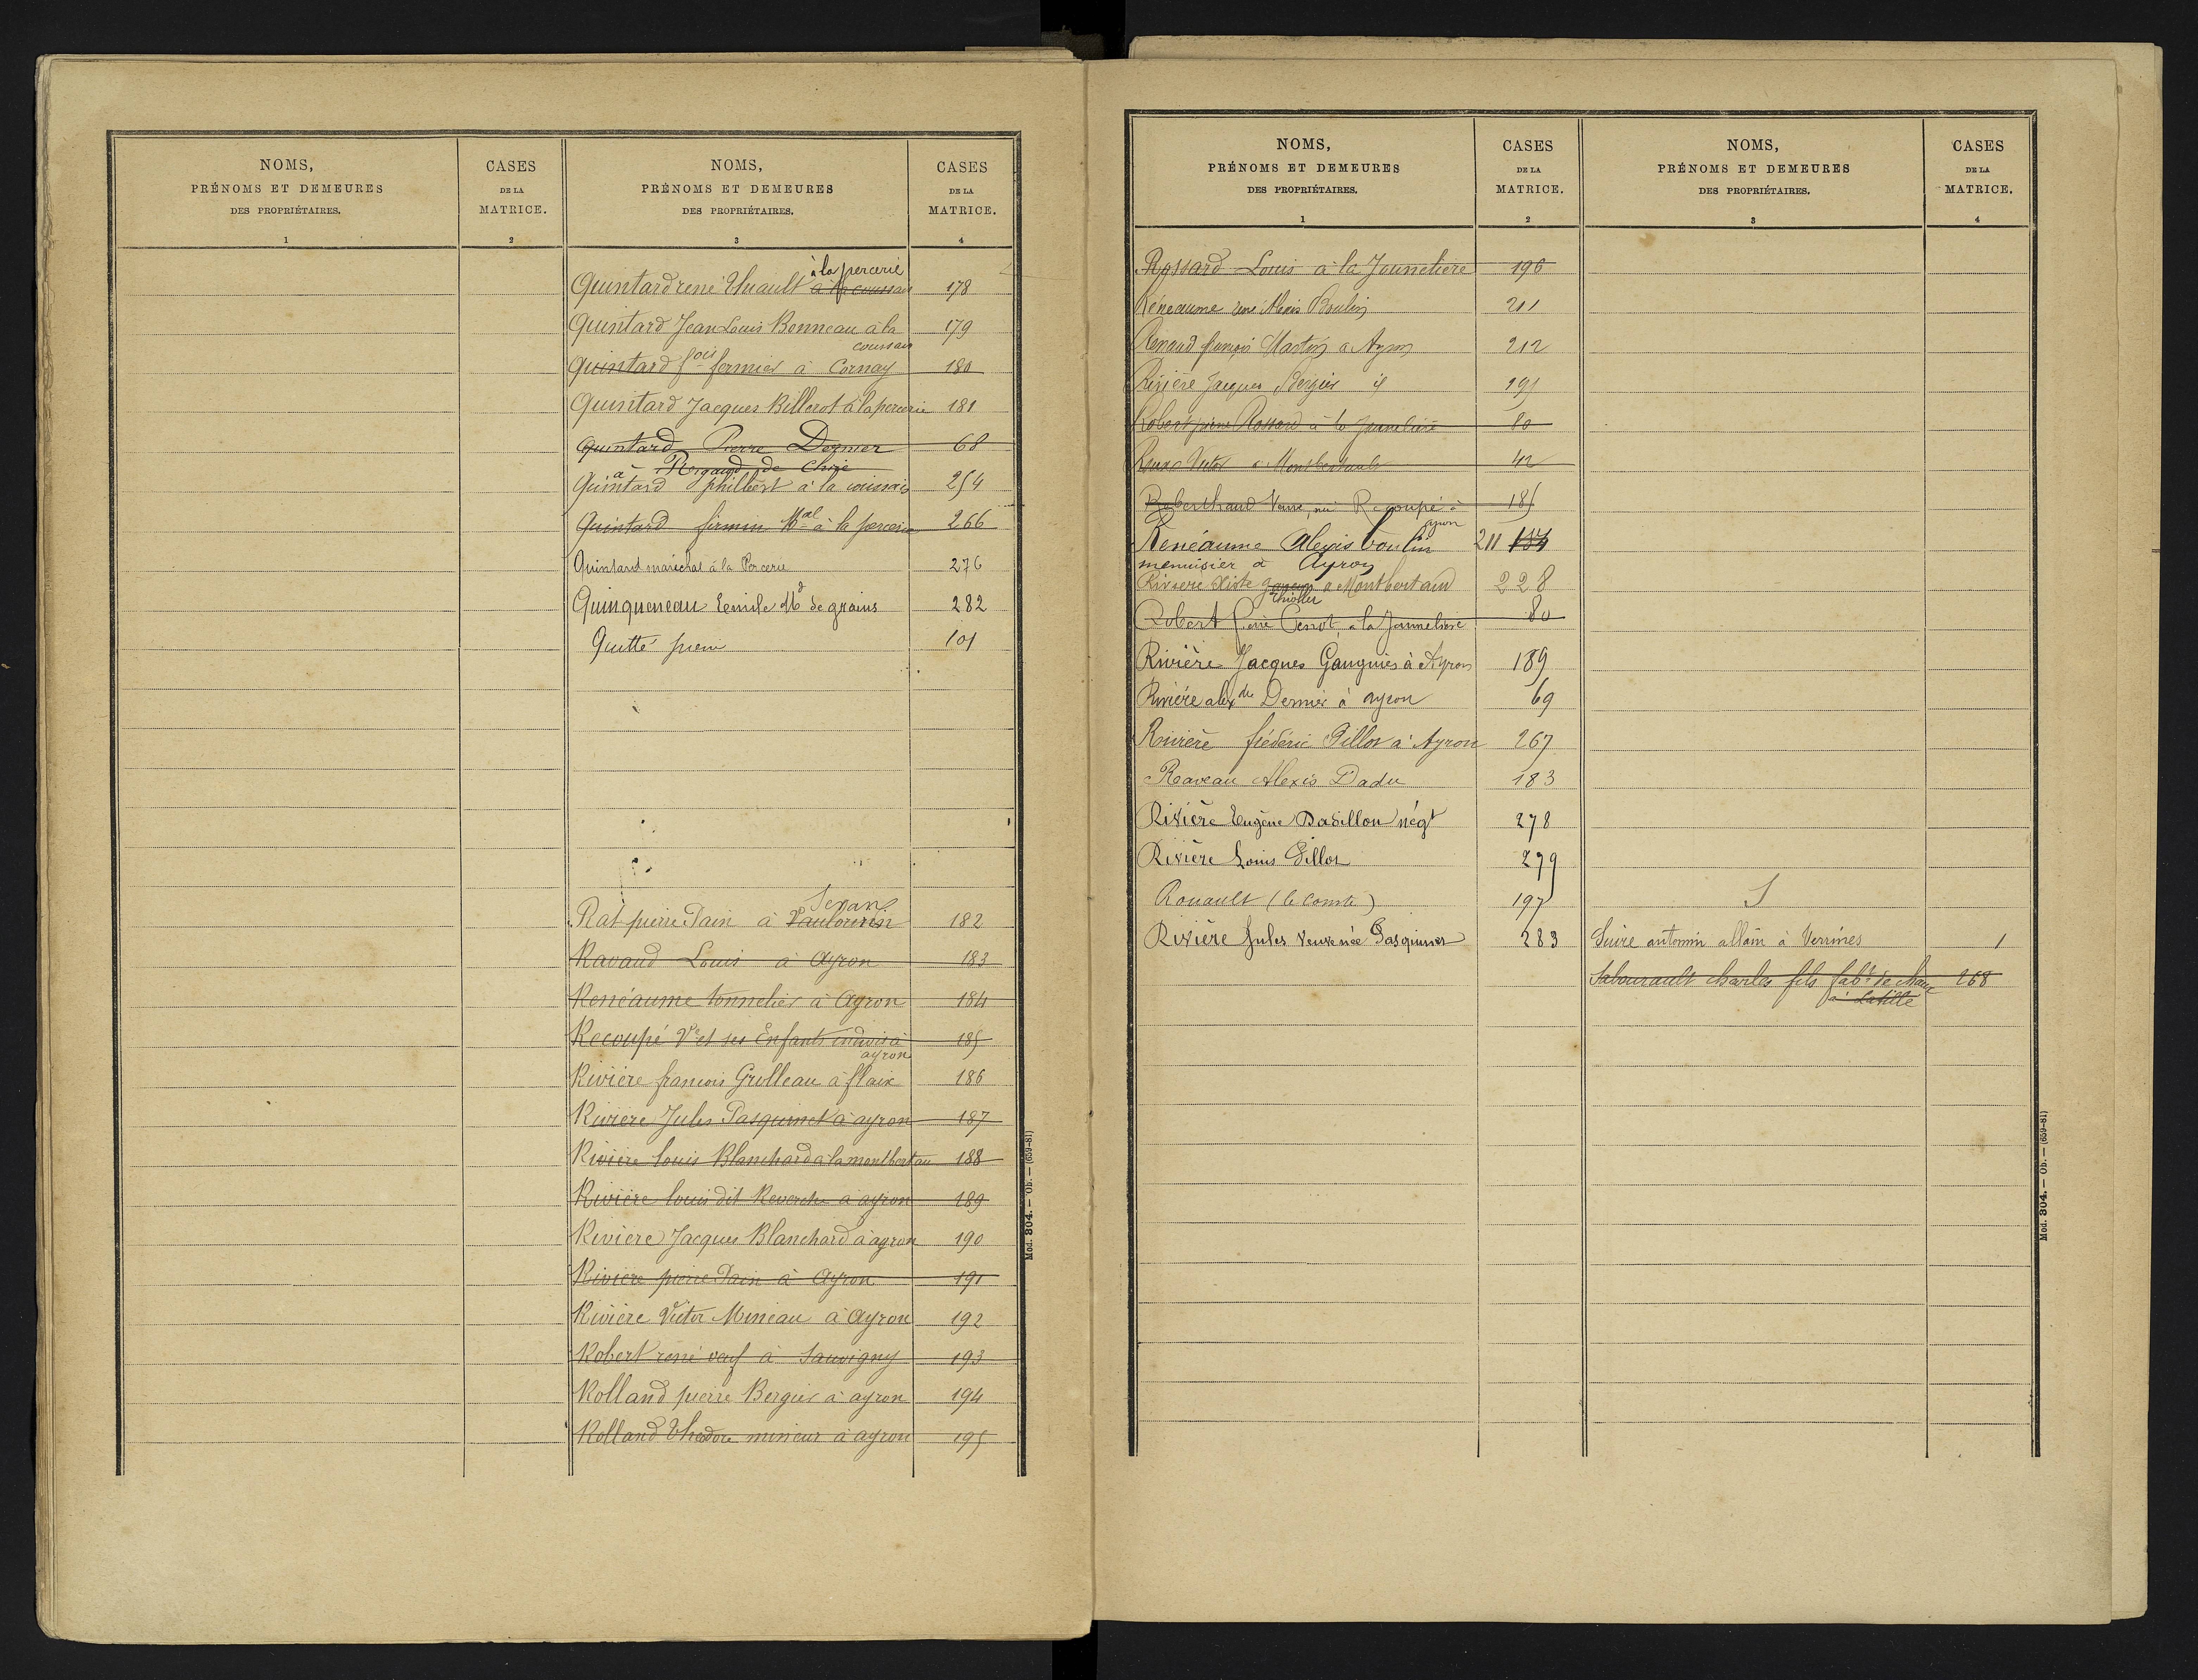 NOMS,
PRÉNOMS ET DEMEURES
DES PROPRIÉTAIRES.
1
CASES
DE LA
MATRICE.
2
NOMS,
PRÉNOMS ET DEMEURES
DES PROPRIÉTAIRES.
3
CASES
DE LA
MATRICE.
4
à la percerie
Quintard rené Huault à la coussais 178
Quintard Jean Louis Bonneau à la 179
coussais
Quintard fois fermier à Cornay 180
Quintard Jacques Billerot à la percerie 181
Quintard Pierre Dernier 68
à Rigaud de Chiré
Quintard philbert à la coussais 254
Quintard firmin Mal à la percerie 266
Quintard maréchal à la Percerie 276
Quinqueneau Emile Md de grains 282
Quitté pierre 101
Rat pierre Pain à 182
Ravaud Louis à Ayron 183
Renéaume tonnelier à Ayron 184
Recoupé Ve et ses Enfants indivis à 185
ayron
Rivière francois Grolleau à flaix 186
Rivière Jules Pasquinet à ayron 187
Rivière louis Blanchard à la montbertau 188
Rivière louis dit Reverche à ayron 189
Rivière Jacques Blanchard à ayron 190
Rivière pierre Pain à Ayron 191
Rivière Victor Mineau à Ayron 192
Robert rené veuf à Sauvigny 193
Rolland pierre Bergier à ayron 194
Rolland Théodore mineur à ayron 195
Mod. 304. — Ob. — (659-81)
NOMS,
PRÉNOMS ET DEMEURES
DES PROPRIÉTAIRES.
1
CASES
DE LA
MATRICE.
2
NOMS,
PRÉNOMS ET DEMEURES
DES PROPRIÉTAIRES.
3
CASES
DE LA
MATRICE.
4
Rossard Louis à la Jounelière 196
Réneaume Alexis Boulin 211
Renaud françois Martin à Ayron 212
Rivière Jacques Bergier id 191
Robert pierre Rossard à la Jounelière 80
Roux Victor à Montbertault 42
Roberthaud Veuve, née Recoupé à 185
ayron
Renéaume Alexis boulin 211 184
menuisier à Ayron
Rivière à Montbertaud 228
Robert Pierre Perrot, à la Jaunelière 80
Rivière Jacques Gauguier à Ayron 189
Rivière alexdre Dernier à ayron 69
Rivière frédéric Gillot à Ayron 267
Raveau Alexis Dadu 183
Rivière Eugène Dasillon négt 278
Rivière Louis Gillot 279
Rouault (le Comte) 197
Rivière Jules Veuve née Pasquinet 283
S
Suire antonin allain à Verrines 1
Sabourault charles fils fabt de chaux 268
à Latille
Mod. 304. — Ob. — (659-81)